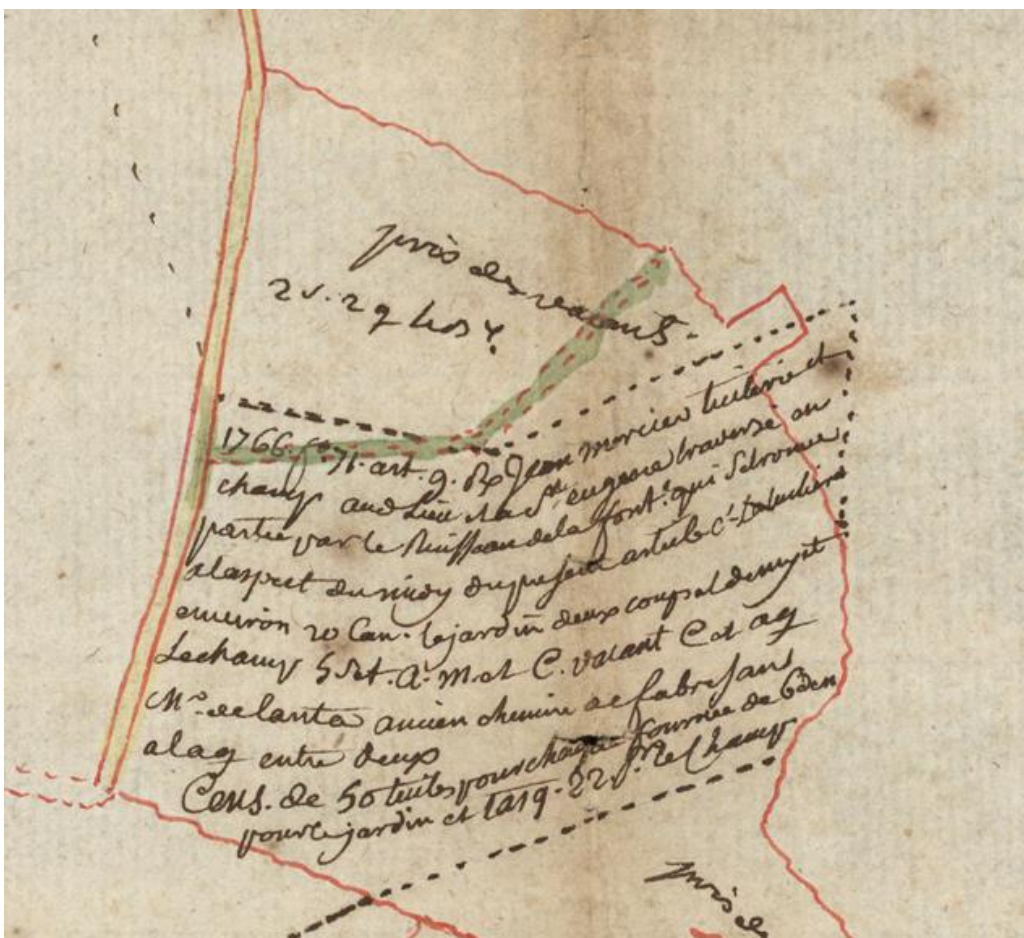 près des vacants.
2 s. 2 q
1766. f° 71. art. 9. Rx Jean mercier tuilerie et
champ aud Lieu et a Ste eugenie traversé en
partie par le Ruisseau de la font. qui se trouve
a laspect du midy du present article Ct. La tuilerie
environ 20 Can. le jardin deux coups et demy et
Le champ 5 set. A. M. et C. vacant C et aq
Mr. de lanta ancien chemin de fabresan
al aq entre deux
Cens. de 50 tuiles pour chaque fournée de
pour le jardin et le Champ
près de